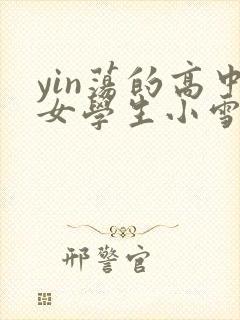 yin蕩的高中
女學生小雪
邢警官